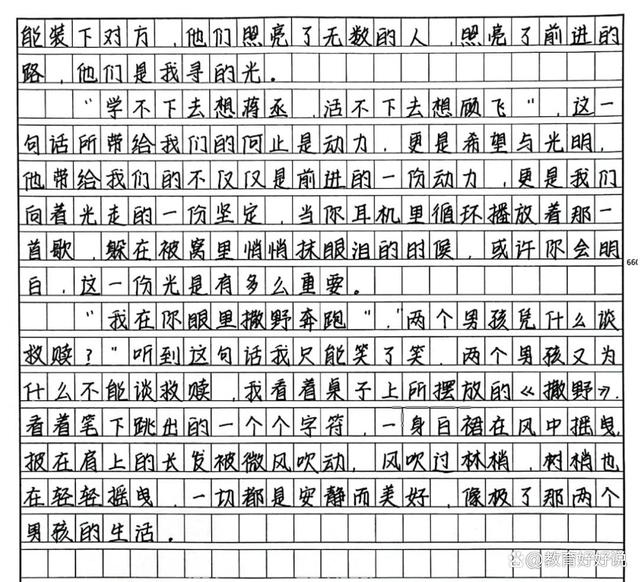 能装下对方，他们照亮了无数的人，照亮了前进的
路，他们是我寻的光。
“学不下去想蒋丞，活不下去想顾飞”，这一
句话所带给我们的何止是动力，更是希望与光明，
他带给我们的不仅仅是前进的一份动力，更是我们
向着光走的一份坚定，当你耳机里循环播放着那一
首歌，躲在被窝里悄悄抹眼泪的时候，或许你会明
白，这一份光是有多么重要。
660
“我在你眼里撒野奔跑”，“两个男孩凭什么谈
救赎？”听到这句话我只能笑了笑，两个男孩又为
什么不能谈救赎，我看着桌子上所摆放的《撒野》，
看着笔下跳出的一个个字符，一身白裙在风中摇曳，
披在肩上的长发被微风吹动，风吹过林梢，树梢也
在轻轻摇曳，一切都是安静而美好，像极了那两个
男孩的生活。
@教育好好说